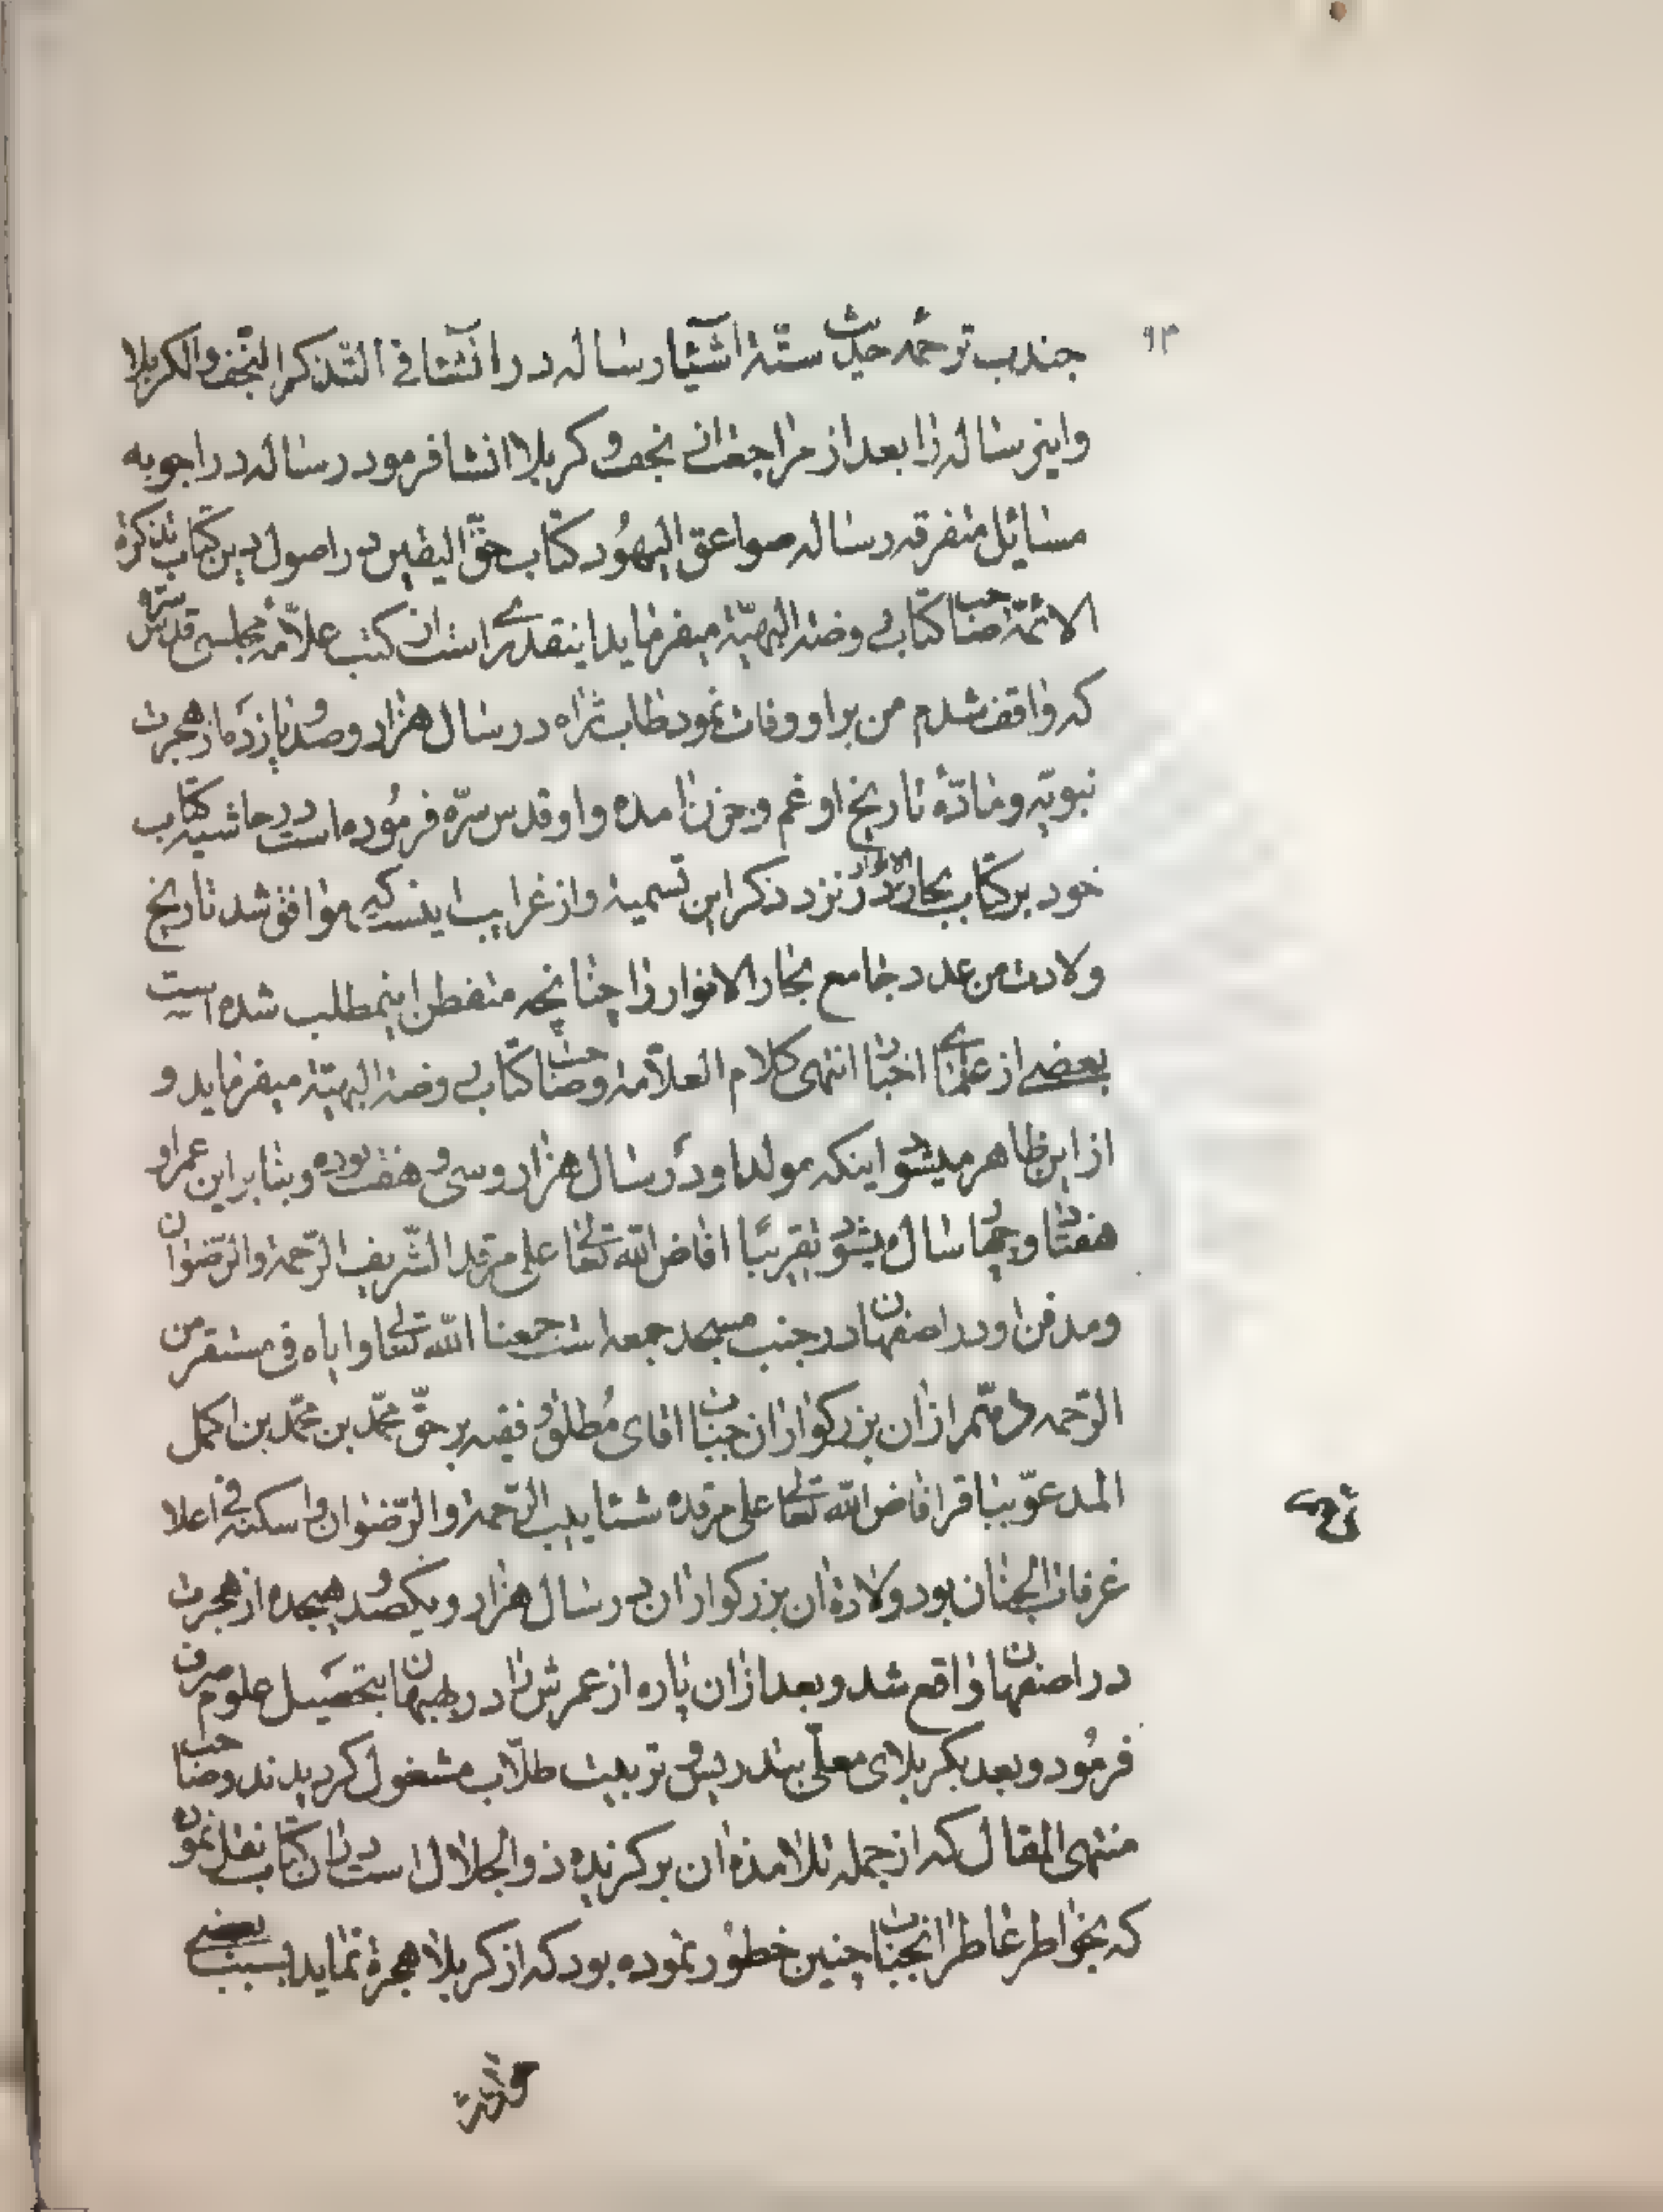 ۹۳
جندب ترجمهٔ حدیث ستّة اشیآء رساله در انشآت فی التذکر النجف والکربلا
واین رساله را بعد از مراجعت از نجف و کربلا انشا فرمود رساله در اجوبه
مسائل متفرقه رساله صواعق الیهُود کتاب حقّ الیقین در اصول دین کتاب تذکرة
الائمّة صاحب کتاب روضة البهیّة میفرماید اینقدری است از کتب علاّمهٔ مجلسی قدس سره
که واقف شدم من بر او وفات نمود طاب ثراه در سال هزار و صد و یازده از هجرت
نبویّه و مادّهٔ تاریخ او غم و حزن امده و او قدس سرّه فرمُوده است در حاشیه کتاب
خود بر کتاب بحار الانوار در نزد ذکر این تسمیة و از غرایب اینست که موافق شد تاریخ
ولادت من عدد جامع بحار الانوار را چنانچه متفطن اینمطلب شده است
بعضی از علمای اخیار انتهی کلام العلاّمة و صاحب کتاب روضة البهیّة میفرماید و
از این ظاهر میشود اینکه مولد او در سال هزار و سی و هفت بوده و بنابر این عمر او
هفتاد و چهار سال میشود تقریبًا افاض الله تعالی علی مرقد الشّریف الرّحمة والرّضوان
ومدفن او در اصفهان در جنب مسجد جمعه است جمعنا الله تعالی وایاه فی مستقر من
الرّحمه دهمّ از ان بزرکواران جناب اقای مُطلق و فقیه بر حقّ محمّد بن محمّد بن اکمل
المدعوّ بباقر افاض الله تعالی علی مرقده شئابیب الرّحمة والرّضوان واسکنه فی اعلا
غرفات الجنان بود ولادة ان بزرکوار ان در سال هزار و یکصُد و هیجده از هجرت
در اصفهان واقع شد و بعد از ان پاره از عمرش را در بهبهان بتحصیل علوم صرف
فرمُود و بعد بکربلای معلّی بتدریس و تربیت طلاّب مشغول کردیدند و صاحب
منتهی المقال که از جمله تلامذه ان برکزیده ذوالجلال است در ان کتاب نقل نموده
که بخواطر عاطر انجناب چنین خطوُر نموده بود که از کربلا هجرة نماید بسبب بعضی